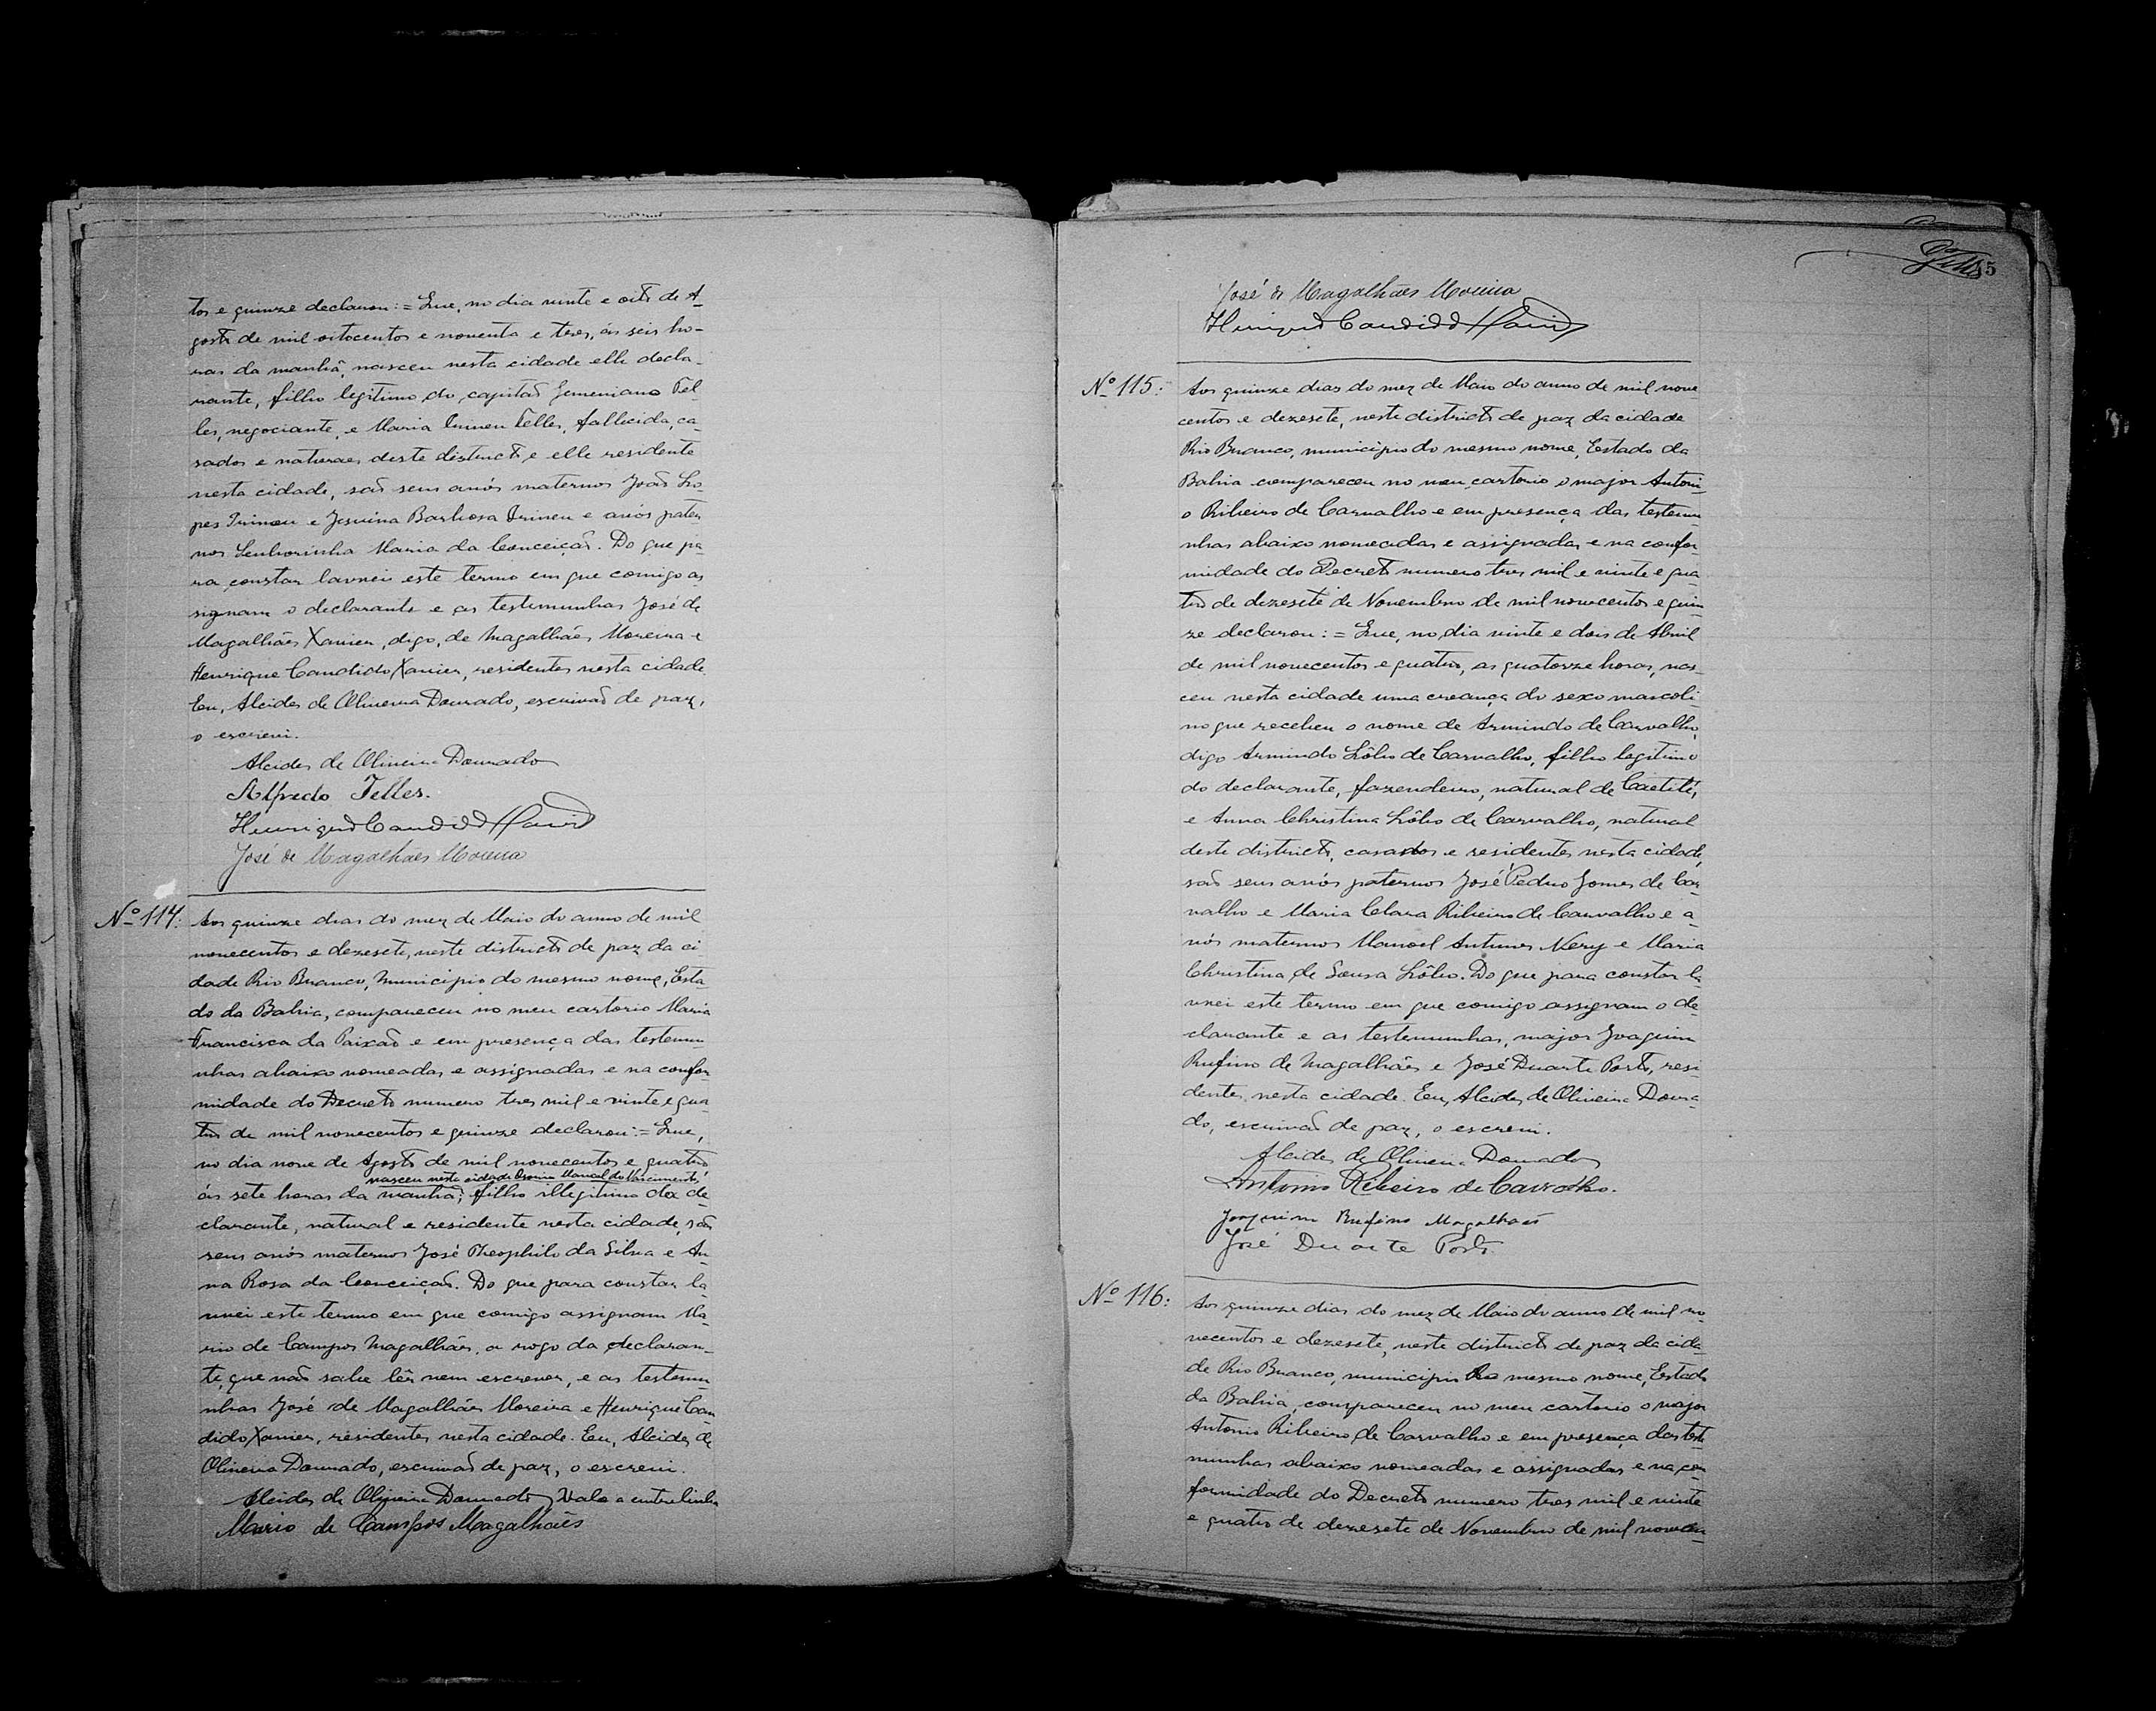 tos e quinze declarou: = Que, no dia vinte e oito de A-
gosto de mil oitocentos e noventa e tres, ás seis ho-
ras da manhã, nasceu nesta cidade elle decla-
rante, filho legitimo do capitão Gemeniano Tel-
les, negociante, e Maria Irineu Telles, fallecida, ca-
sados e naturaes deste districto e elle residente
nesta cidade, são seus avós maternos João Lo-
pes Irineu e Jesuina Barbosa Irineu e avós pater
nos Senhorinha Maria da Conceição. Do que pa-
ra constar lavrei este termo em que comigo as
signam o declarante e as testemunhas José de
Magalhães Xavier, digo, de Magalhães Moreira e
Henrique Candido Xavier, residentes nesta cidade.
Eu, Alcides de Oliveira Dourado, escrivão de paz,
o escrevi.
Alcides de Oliveira Dourado
Alfredo Telles.
Henrique Candido Xavier
José de Magalhães Moreira
Nº 114: Aos quinze dias do mez de Maio do anno de mil
novecentos e dezesete, neste districto de paz da ci
dade Rio Branco, Municipio do mesmo nome, Esta
do da Bahia, compareceu no meu cartorio Maria
Francisca da Paixão e em presença das testemu
nhas abaixo nomeadas e assignadas e na confor
midade do Decreto numero tres mil e vinte e qua
tro de mil novecentos e quinze declarou: = Que,
no dia nove de Agosto de mil novecentos e quatro
nasceu nesta cidade Manoel do Nascimento,
ás sete horas da manhã, filho illegitimo da de
clarante, natural e residente nesta cidade, são
seus avós maternos José Theophilo da Silva e An
na Rosa da Conceição. Do que para constar la-
vrei este termo em que comigo assignam Ma-
rio de Campos Magalhães, a rogo da declaran-
te, que não sabe lêr nem escrever, e as testemu
nhas José de Magalhães Moreira e Henrique Can
dido Xavier, residentes nesta cidade. Eu, Alcides de
Oliveira Dourado, escrivão de paz, o escrevi.
Alcides de Oliveira Dourado Vale a entrelinha
Mario de Campos Magalhães
José de Magalhães Moreira
Henrique Candido Xavier
Nº 115: Aos quinze dias do mez de Maio do anno de mil nove
centos e dezesete, neste districto de paz da cidade
Rio Branco, municipio do mesmo nome, Estado da
Bahia compareceu no meu cartorio o major Antoni-
o Ribeiro de Carvalho e em presença das testemu
nhas abaixo nomeadas e assignadas e na confor
midade do Decreto numero tres mil e vinte e qua
tro de dezesete de Novembro de mil novecentos e quin
ze declarou: = Que, no dia vinte e dois de Abril
de mil novecentos e quatro, as quatorze horas, nas
ceu nesta cidade uma creança do sexo mascoli
no que recebeu o nome de Armindo de Carvalho,
digo Armindo Lôbo de Carvalho, filho legitimo
do declarante, fazendeiro, natural de Caetité,
e Anna Christina Lôbo de Carvalho, natural
deste districto, casados e residentes nesta cidade,
são seus avós paternos José Pedro Gomes de Car
valho e Maria Clara Ribeiro de Carvalho e a
vós maternos Manoel Antunes Nery e Maria
Christina de Sousa Lôbo. Do que para constar la
vrei este termo em que comigo assignam o de-
clarante e as testemunhas, major Joaquim
Rufino de Magalhães e José Duarte Porto, resi
dentes nesta cidade. Eu, Alcides de Oliveira Doura-
do, escrivão de paz, o escrevi.
Alcides de Oliveira Dourado
Antonio Ribeiro de Carvalho.
Joaquim Rufino Magalhães
José Duarte Porto.
Nº 116: Aos quinze dias do mez de Maio do anno de mil no-
vecentos e dezesete, neste districto de paz da cida-
de Rio Branco, municipio do mesmo nome, Estado
da Bahia, compareceu no meu cartorio o major
Antonio Ribeiro de Carvalho e em presença das teste
munhas abaixo nomeadas e assignadas e na con
formidade do Decreto numero tres mil e vinte
e quatro de dezesete de Novembro de mil novecen-